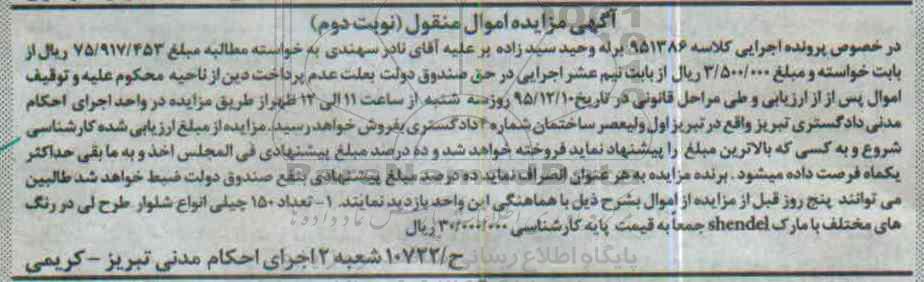 آگهی مزایده اموال منقول (نوبت دوم)
در خصوص پرونده اجرایی کلاسه ۹۵۱۳۸۶ برله وحید سید زاده بر علیه آقای نادر سهندی به خواسته مطالبه مبلغ ۷۵/۹۱۷/۴۵۳ ریال از
بابت خواسته و مبلغ ۳/۵۰۰/۰۰۰ ریال از بابت نیم عشر اجرایی در حق صندوق دولت بعلت عدم پرداخت دین از ناحیه محکوم علیه و توقیف
اموال پس از از ارزیابی و طی مراحل قانونی در تاریخ ۹۵/۱۲/۱۰ روز سه شنبه از ساعت ۱۱ الی ۱۲ ظهر از طریق مزایده در واحد اجرای احکام
مدنی دادگستری تبریز واقع در تبریز اول ولیعصر ساختمان شماره ۲ دادگستری بفروش خواهد رسید. مزایده از مبلغ ارزیابی شده کارشناسی
شروع و به کسی که بالاترین مبلغ را پیشنهاد نماید فروخته خواهد شد و ده درصد مبلغ پیشنهادی فی المجلس اخذ و به ما بقی حداکثر
یکماه فرصت داده میشود. برنده مزایده به هر عنوان انصراف نماید ده درصد مبلغ پیشنهادی بنفع صندوق دولت ضبط خواهد شد طالبین
می توانند پنج روز قبل از مزایده از اموال بشرح ذیل با هماهنگی این واحد بازدید نمایند. ۱- تعداد ۱۵۰ چیلی انواع شلوار طرح لی در رنگ
های مختلف با مارک shendel جمعا به قیمت پایه کارشناسی ۳۰/۰۰۰/۰۰۰ ریال
ح/۱۰۷۲۲ شعبه ۲ اجرای احکام مدنی تبریز - کریمی
پایگاه اطلاع رسانی